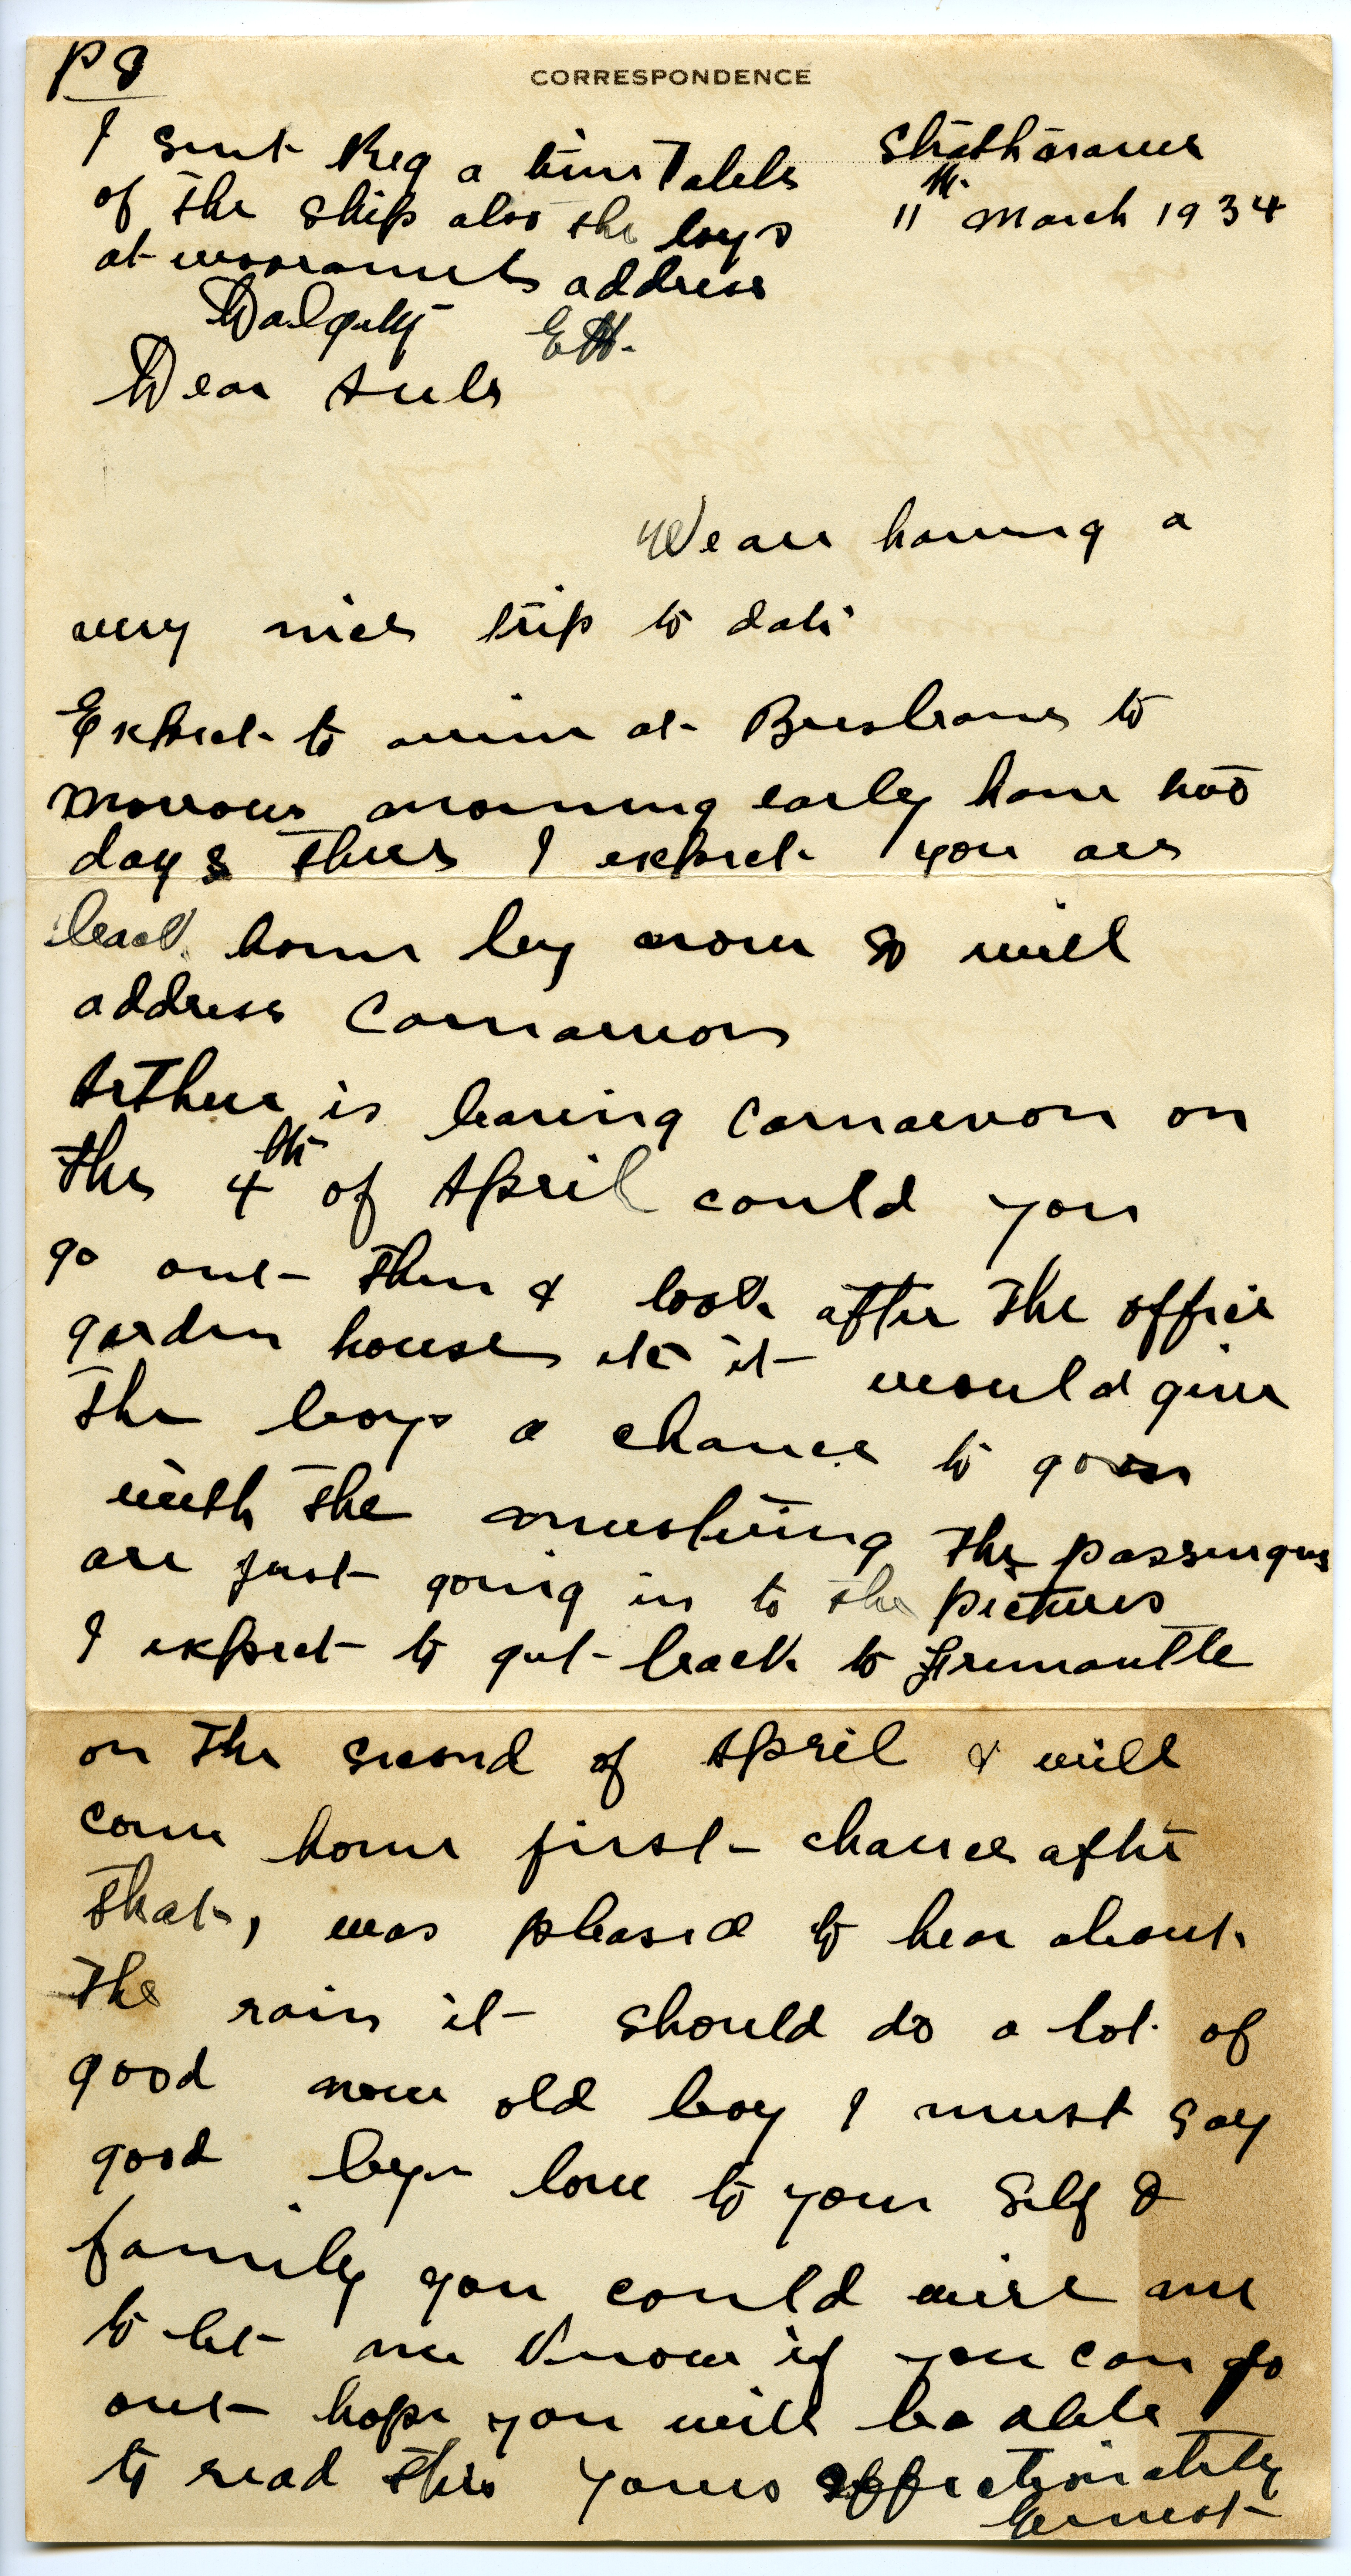 P 8
CORRESPONDENCE
I sent Reg a time Table
of the ship also the boys
at wooramel address
Dalgety E H.
Strathnaver
11th March 1934
Dear Aule
We are having a
very nice trip to date
Expect to arrive at Brisbane to
morrow morning early have two
days there I expect you are
back home by now so will
address Carnarvon
Arthur is leaving Carnarvon on
the 4th of April could you
go out then & look after the office
garden house etc it would give
the boys a chance to go on
with the mustering the passengers
are just going in to the pictures
I expect to get back to Fremantle
on the second of April & will
come home first chance after
that, was pleased to hear about
the rain it should do a lot of
good now old boy I must say
good bye love to your self &
family you could wire me
to let me know if you can go
out hope you will be able
to read this yours affectionately
Ernest